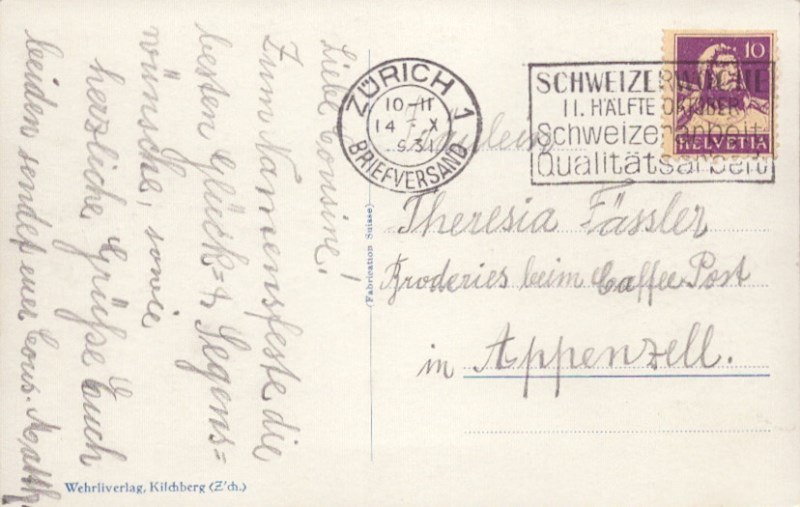 Liebe Cousine!
Zum Namensfeste die
besten Glück= & Segens=
wünsche, sowie
herzliche Grüße Euch
beiden sendet euer Cous. Matth.
(Fabrication Suisse)
Wehrliverlag, Kilchberg (Z'ch.)
ZÜRICH 1
10-11
14 X
931
BRIEFVERSAND
SCHWEIZERWOCHE
II. HÄLFTE OKTOBER
Schweizerarbeit
Qualitätsarbeit
10
HELVETIA
Fräulein
Theresia Fässler
Broderies beim Caffee Post
in Appenzell.